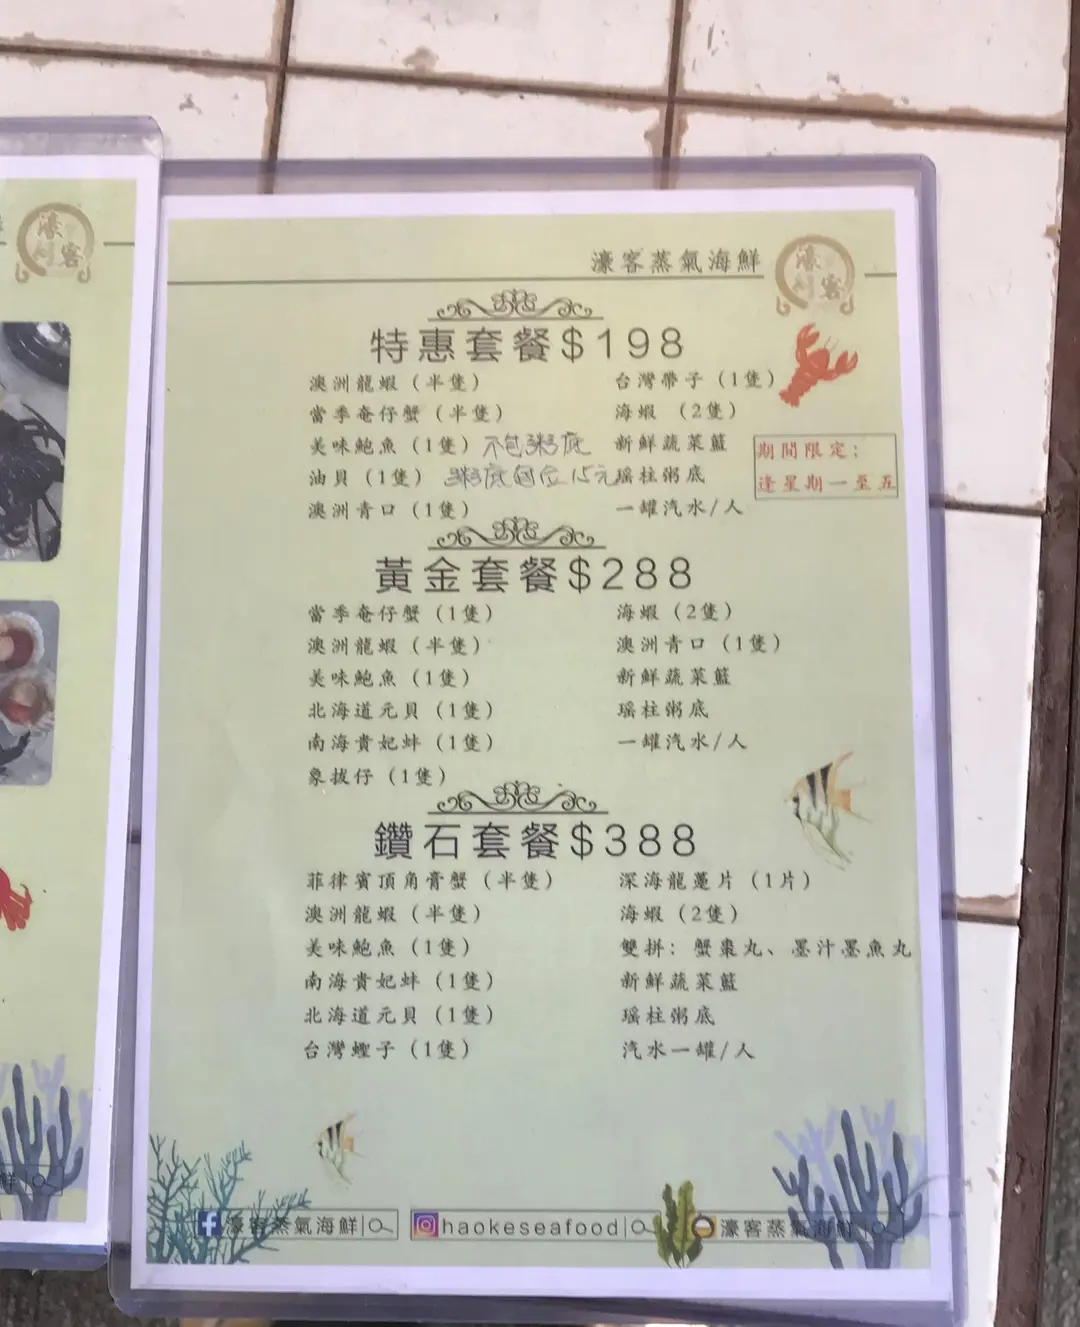 濠客蒸氣海鮮
濠
客
特惠套餐$198
澳洲龍蝦（半隻）
當季奄仔蟹（半隻）
美味鮑魚（1隻） 不包粥底
油貝（1隻） 粥底每位15元
澳洲青口（1隻）
台灣帶子（1隻）
海蝦（2隻）
新鮮蔬菜籃
瑶柱粥底
一罐汽水/人
期間限定：
逢星期一至五
黃金套餐$288
當季奄仔蟹（1隻）
澳洲龍蝦（半隻）
美味鮑魚（1隻）
北海道元貝（1隻）
南海貴妃蚌（1隻）
象拔仔（1隻）
海蝦（2隻）
澳洲青口（1隻）
新鮮蔬菜籃
瑶柱粥底
一罐汽水/人
鑽石套餐$388
菲律賓頂角膏蟹（半隻）
澳洲龍蝦（半隻）
美味鮑魚（1隻）
南海貴妃蚌（1隻）
北海道元貝（1隻）
台灣蟶子（1隻）
深海龍躉片（1片）
海蝦（2隻）
雙拼：蟹棗丸、墨汁墨魚丸
新鮮蔬菜籃
瑶柱粥底
汽水一罐/人
濠客蒸氣海鮮
haokeseafood
濠客蒸氣海鮮
濠
客
鮮